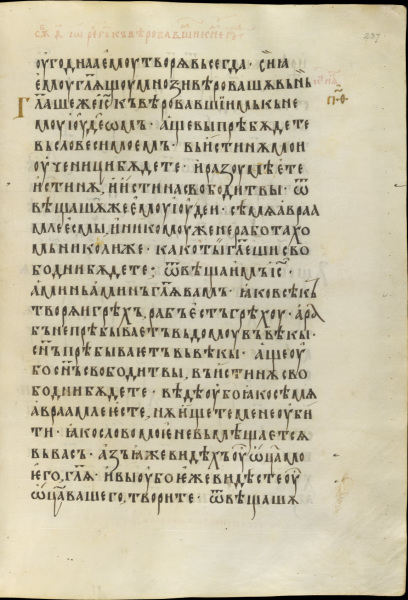 оугоднаа емоу творѧ вьсегда · сиꙗ
емоу гл҃ѧщоу мноѕи вѣровашѫ въ нь
Гл҃аше же іс҃ къ вѣровавшїимь къ не
моу іоудеѡмъ · аще вы прѣбѫдете
въ словеси моемь · въ истинѫ мои
оученици бѫдете · и разоумѣете
истинѫ, и истина свободитъ вы · ѿ
вѣщашѫ же емоу іоудеи · сѣмѧ авраа
млее есмы, и никомоуже не работахо
мь николиже · како ты гл҃еши сво
бодни бѫдете · ѿвѣща имъ іс҃ ·
аминь аминь гл҃ѧ вамь · ꙗко всѣкъ
творѧи грѣхъ, рабъ естъ грѣхоу · а ра
бъ не прѣбываетъ въ домоу въ вѣкы ·
сн҃ъ прѣбываетъ въ вѣкы · аще оу
бо сн҃ъ свободитъ вы, въ истинѫ сво
бодни бѫдете · вѣдѣ оубо ꙗко сѣмѧ
авраамле есте, нѫ ищете мене оуби
ти · ꙗко слово мое не вьмѣщаетсѧ
въ васъ · азъ ꙗже видѣхъ оу ѿц҃а мо
его, гл҃ѧ · и вы оубо еже видѣсте оу
ѿц҃а вашего, творите · ѿвѣщашѧ
237